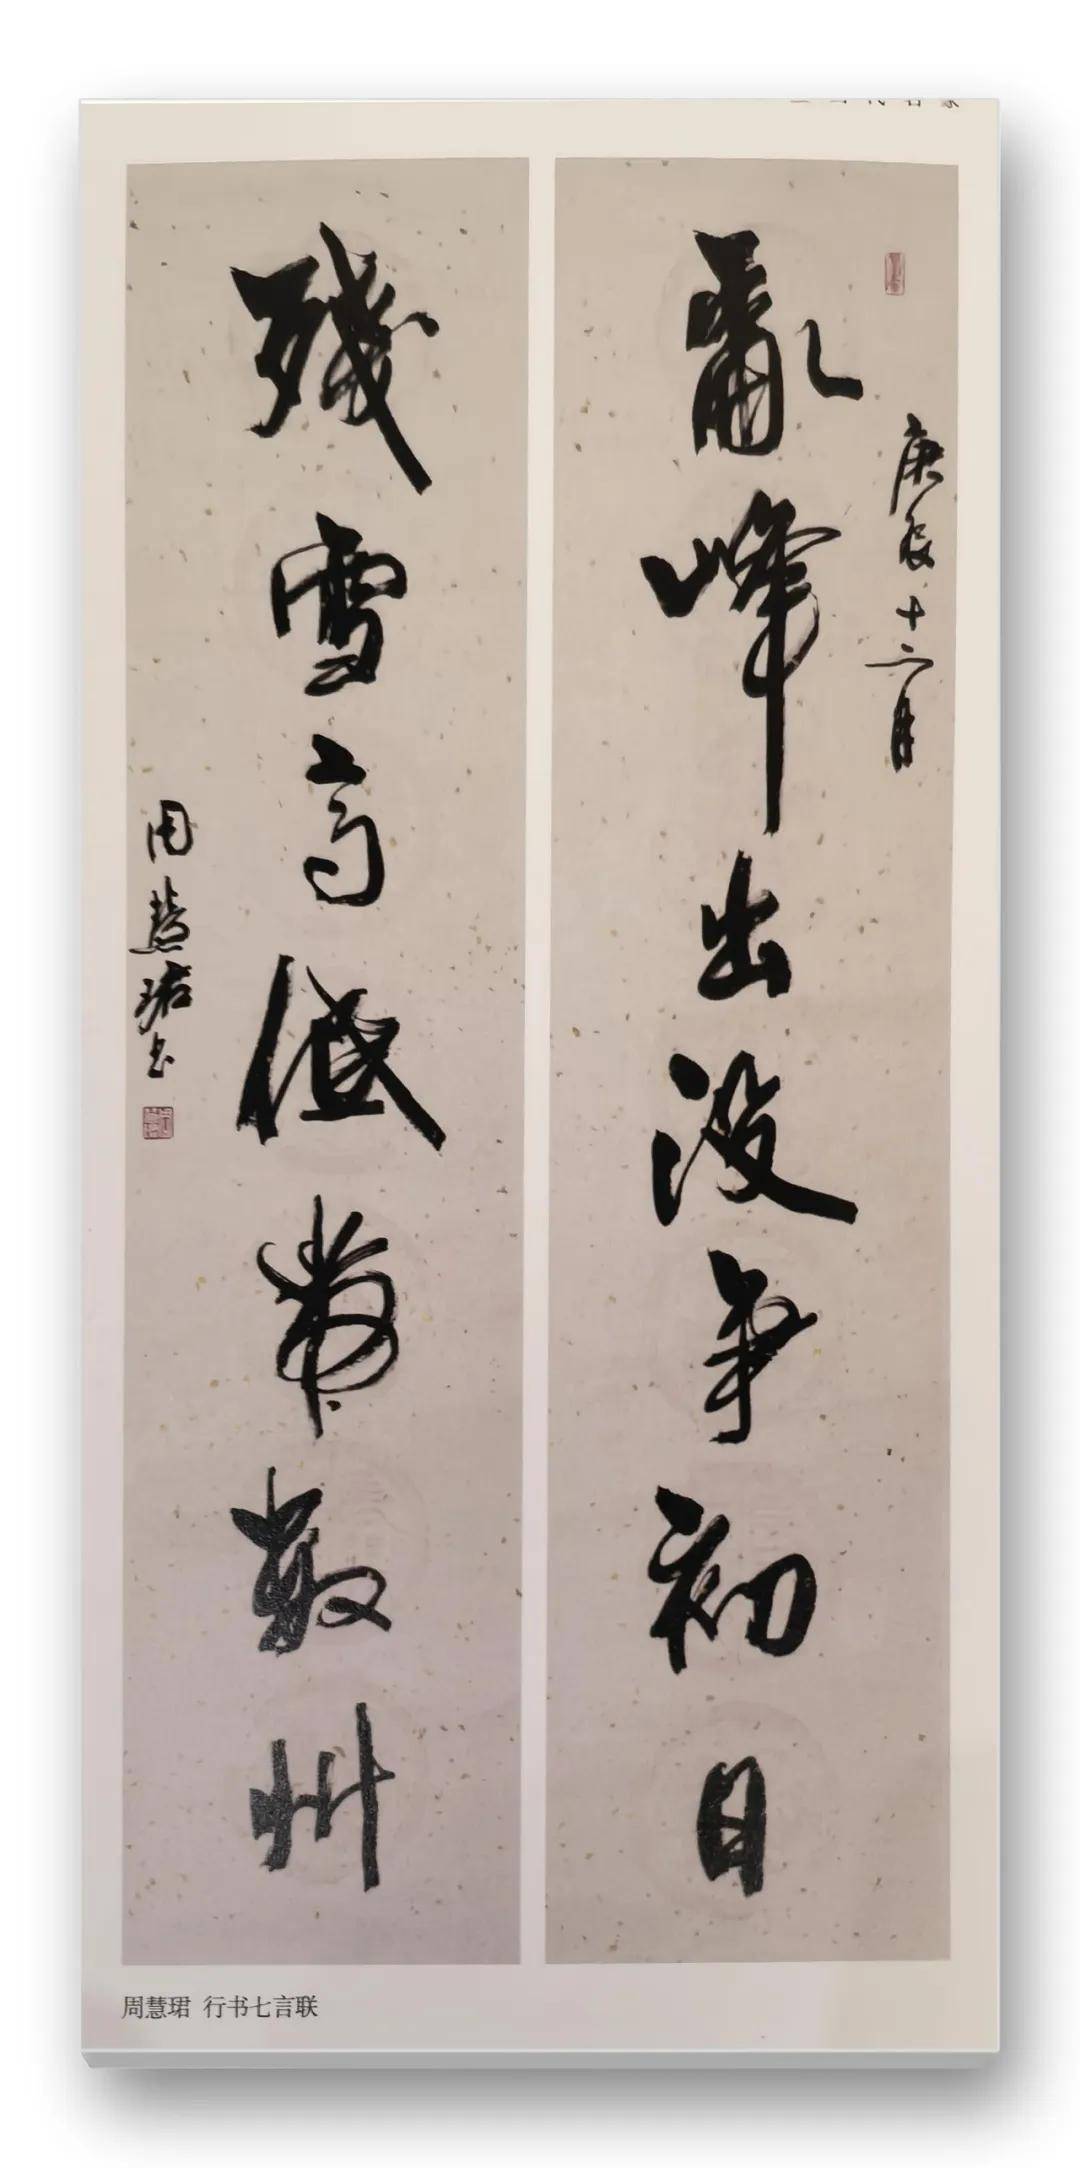 亂峰出没争初日
庚辰十二月
殘雪高低帶數州
周慧珺书
周慧珺 行书七言联